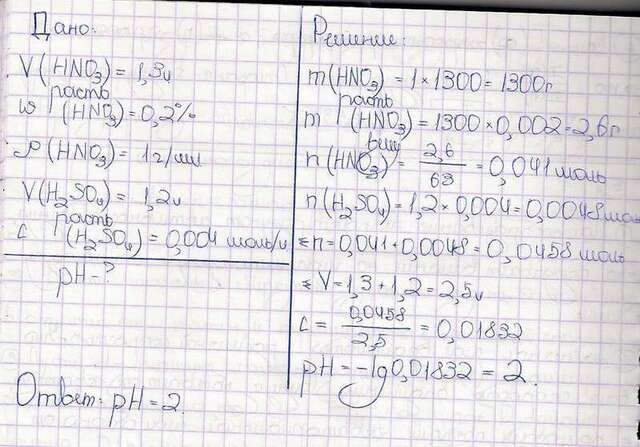 Дано:
V(HNO₃) = 1,3л
раств
ω (HNO₃) = 0,2%
ρ(HNO₃) = 1г/мл
V(H₂SO₄) = 1,2л
раств
c (H₂SO₄) = 0,004 моль/л
pH-?
Ответ: pH = 2
Решение:
m(HNO₃) = 1×1300 = 1300г
раств
m (HNO₃) = 1300×0,002=2,6г
n(HNO₃) = 2,6/63 = 0,041 моль
n(H₂SO₄) = 1,2×0,004=0,0048моль
Σn=0,041+0,0048=0,0458 моль
ΣV=1,3+1,2=2,5л
c = 0,0458/2,5 = 0,01832
pH=-lg0,01832=2.